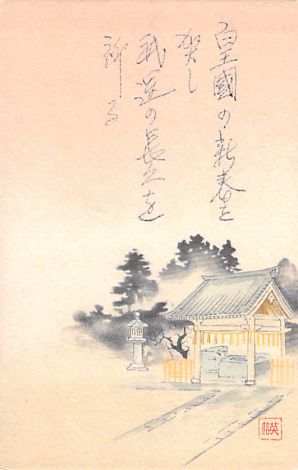 皇國の新春を
賀し
武運の長久を
祈る